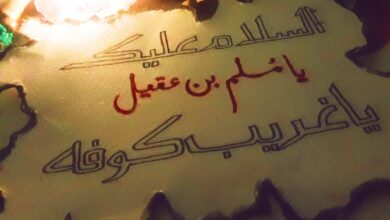 السلام علیک
یا مُسلم بن عقیل
یا غریب کوفه